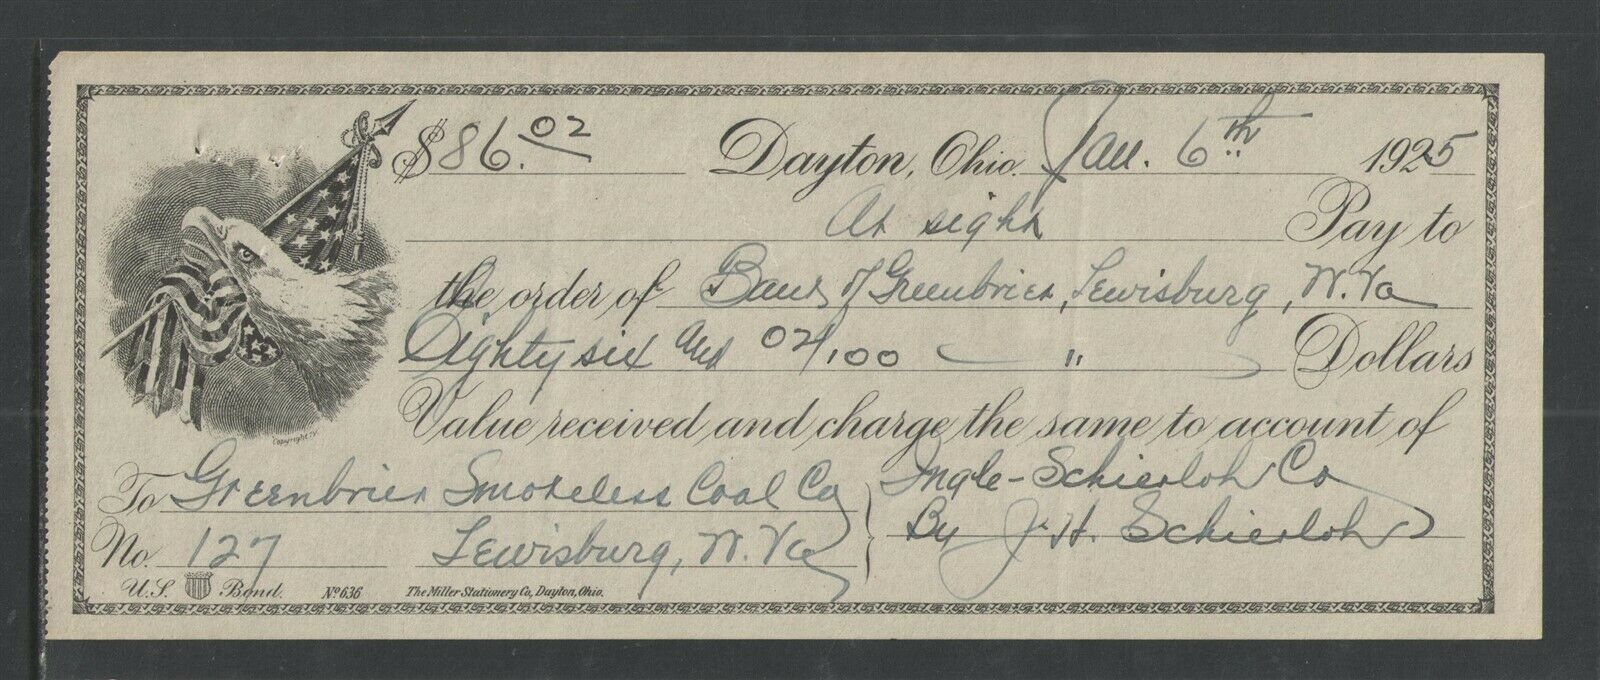 $86.02 Dayton, Ohio. Jan. 6th 1925
At sight Pay to
the order of Bank of Greenbrier, Lewisburg, W. Va
Eighty six and 02/100 " Dollars
Value received and charge the same to account of
To Greenbrier Smokeless Coal Co } Ingle-Schierloh Co
No. 127 Lewisburg, W. Va By J. H. Schierloh
U.S. Bond. No 636 The Miller Stationery Co, Dayton, Ohio.
Copyright